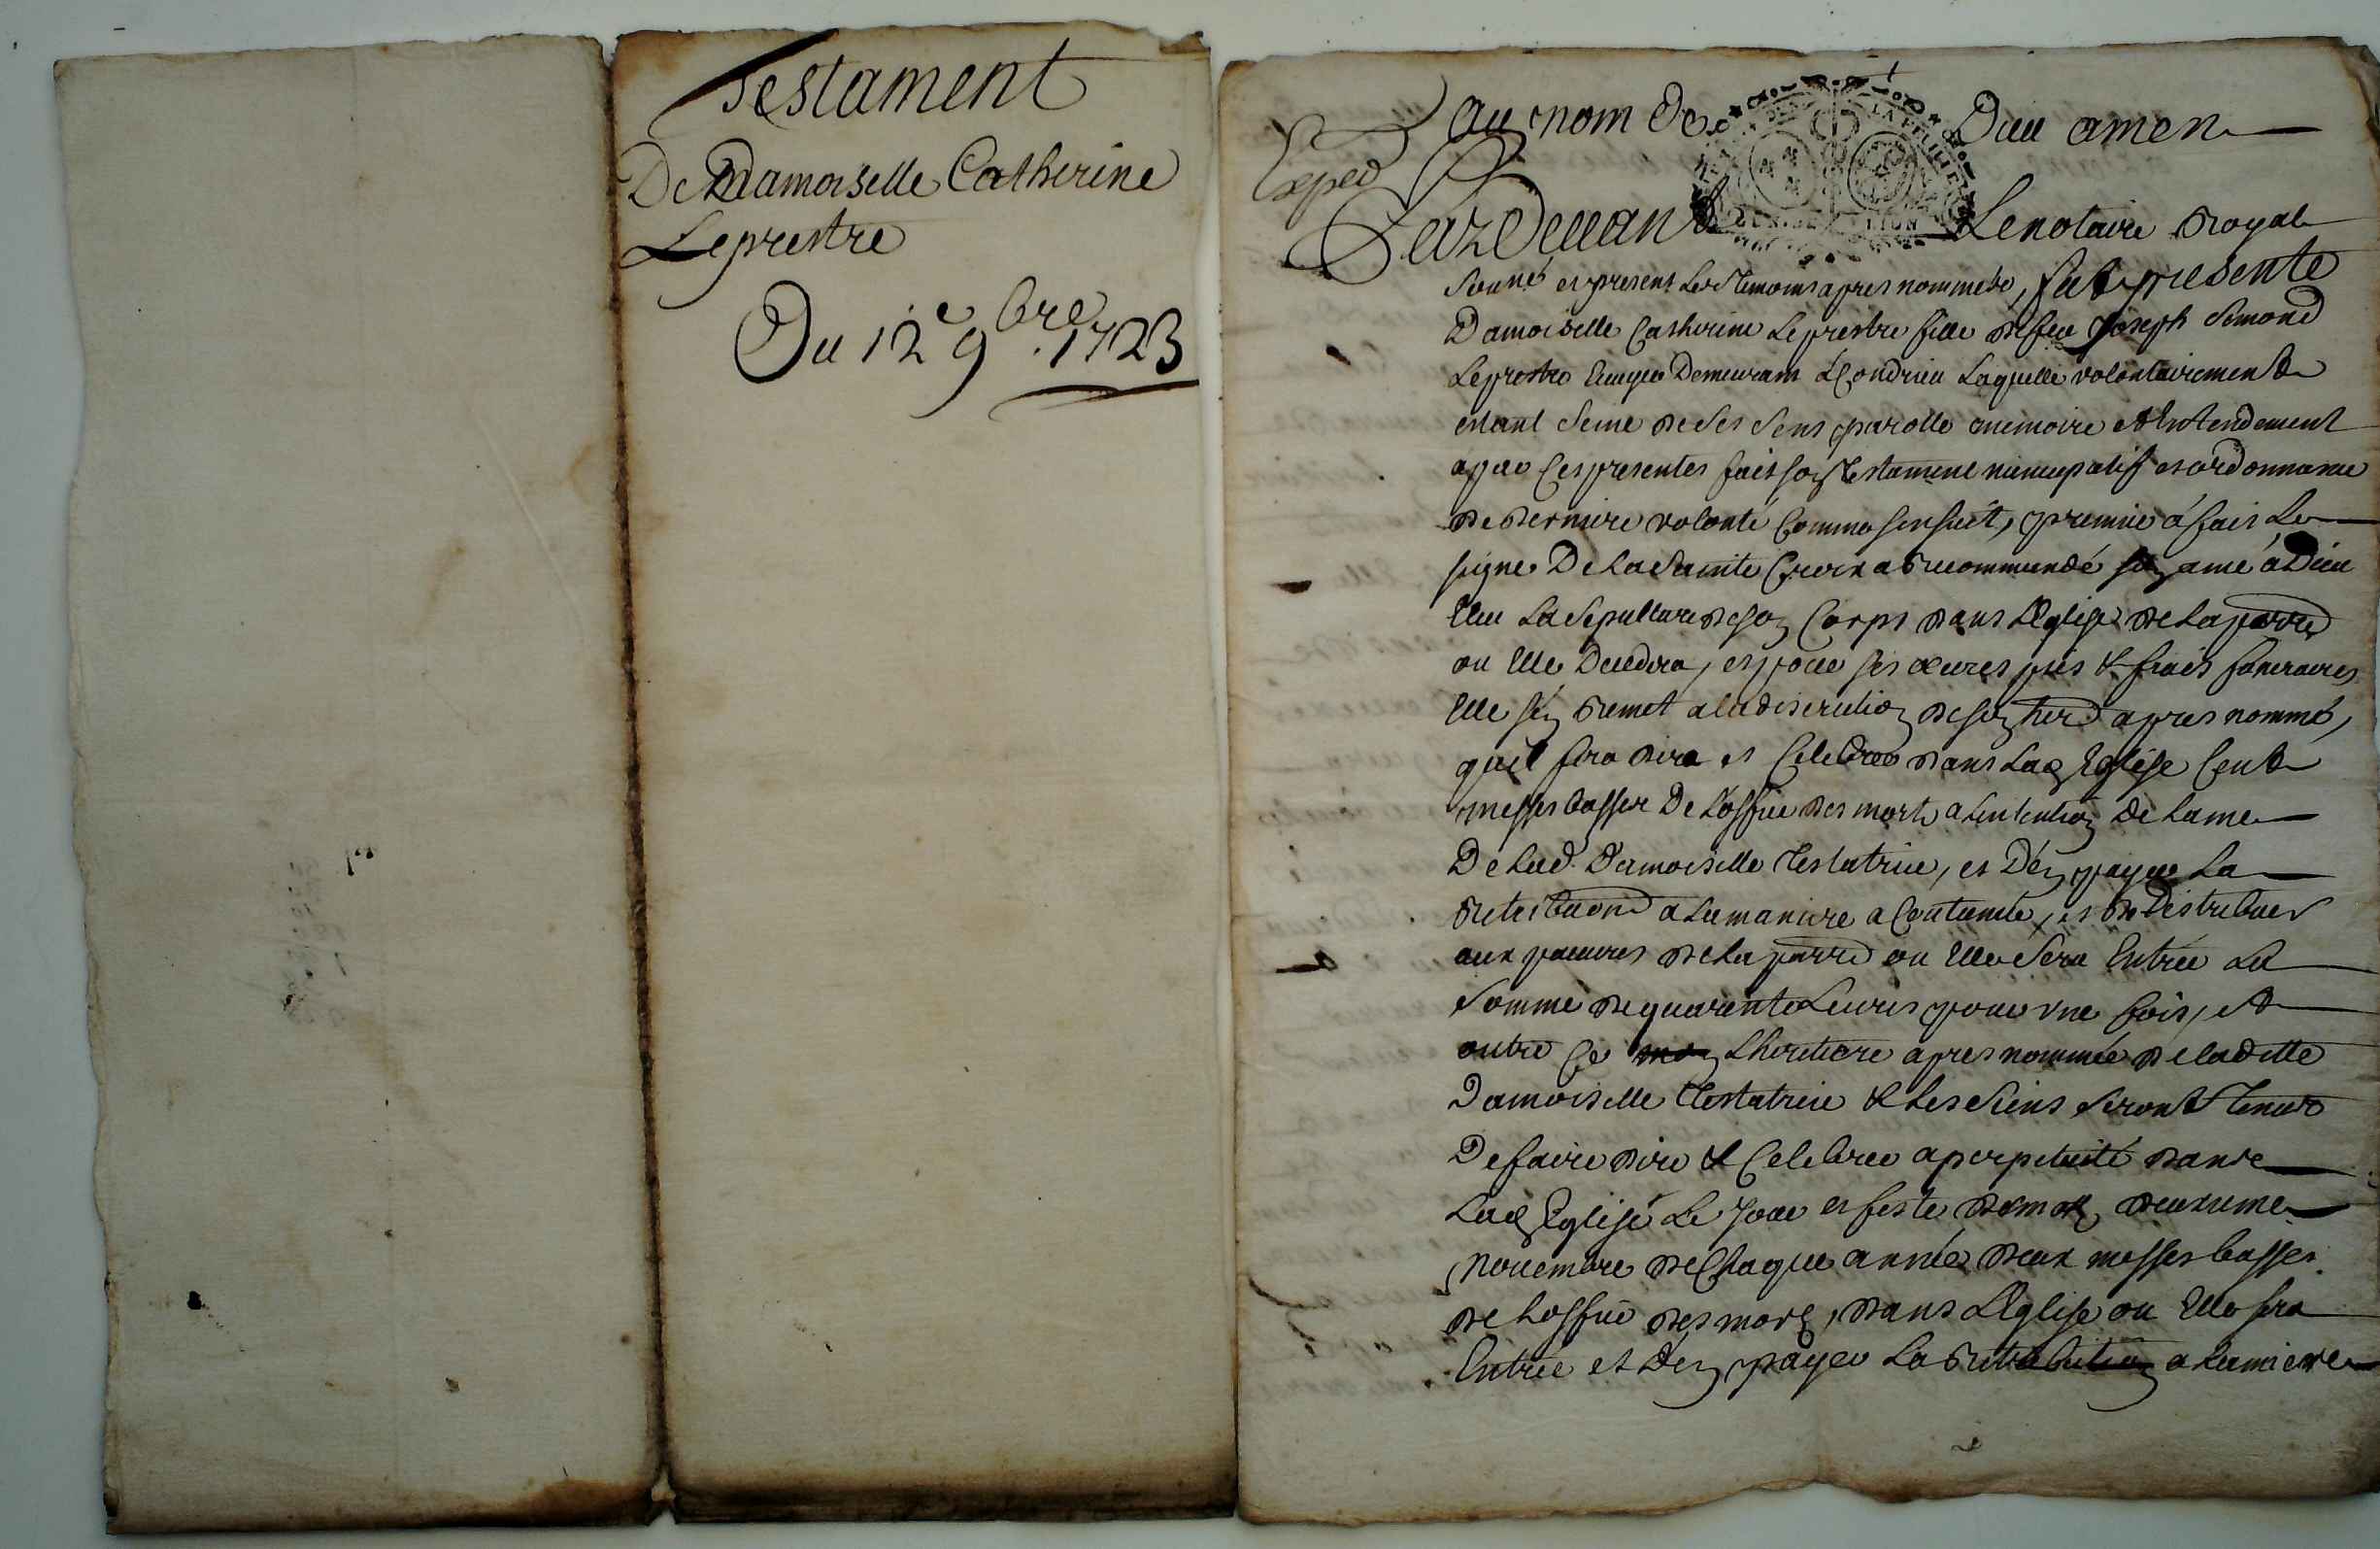 Testament
De Damoiselle Catherine
Leprestre
Du 12e 9bre 1723
Exped
Au nom De Dieu amen
Pardevant Le notaire Royal
sousné et present Les Temoins apres nommés, fut presente
Damoiselle Catherine Leprestre fille de feu Joseph Simond
Leprestre Ecuyer Demeurant à Condrieu Laquelle volontairement
estant seine de ses sens parolle memoire et Entendement
a par Ces presentes fait son Testament nuncupatif et ordonnance
de derniere volonté Comme sensuit, premier à fait Le
signe De La Sainte Croix a Recommandé son ame à Dieu
Elleu La sepulture de son Corps dans LEglise de La parre
ou Elle Deceddera, et pour ses œuvres pies & frais funeraires
Elle sen Remet a la discretion de son herd apres nommé,
quil fera dire et Celebrer dans Lad Eglise Cent
messes basses De Loffice des morts a lintention de Lame
De Lad. Damoiselle Testatrice, et Den payer La
Retribuon a La maniere a Coutumée, et de Distribuer
aux pauvres de La parre ou Elle sera Entrée La
somme de quarente Livres pour vne fois, et
outre Ce Lheritiere apres nommée de laditte
Damoiselle Testatrice & Les siens seront Tenus
De faire dire & Celebrer a perpetuité dans
Lad Eglise Le Jour et feste des mors deuxieme
Novembre de Chaque année deux messes basses
de Loffice des mors, dans LEglise ou Elle sera
Entrée et Den payer La Retribution a La maniere